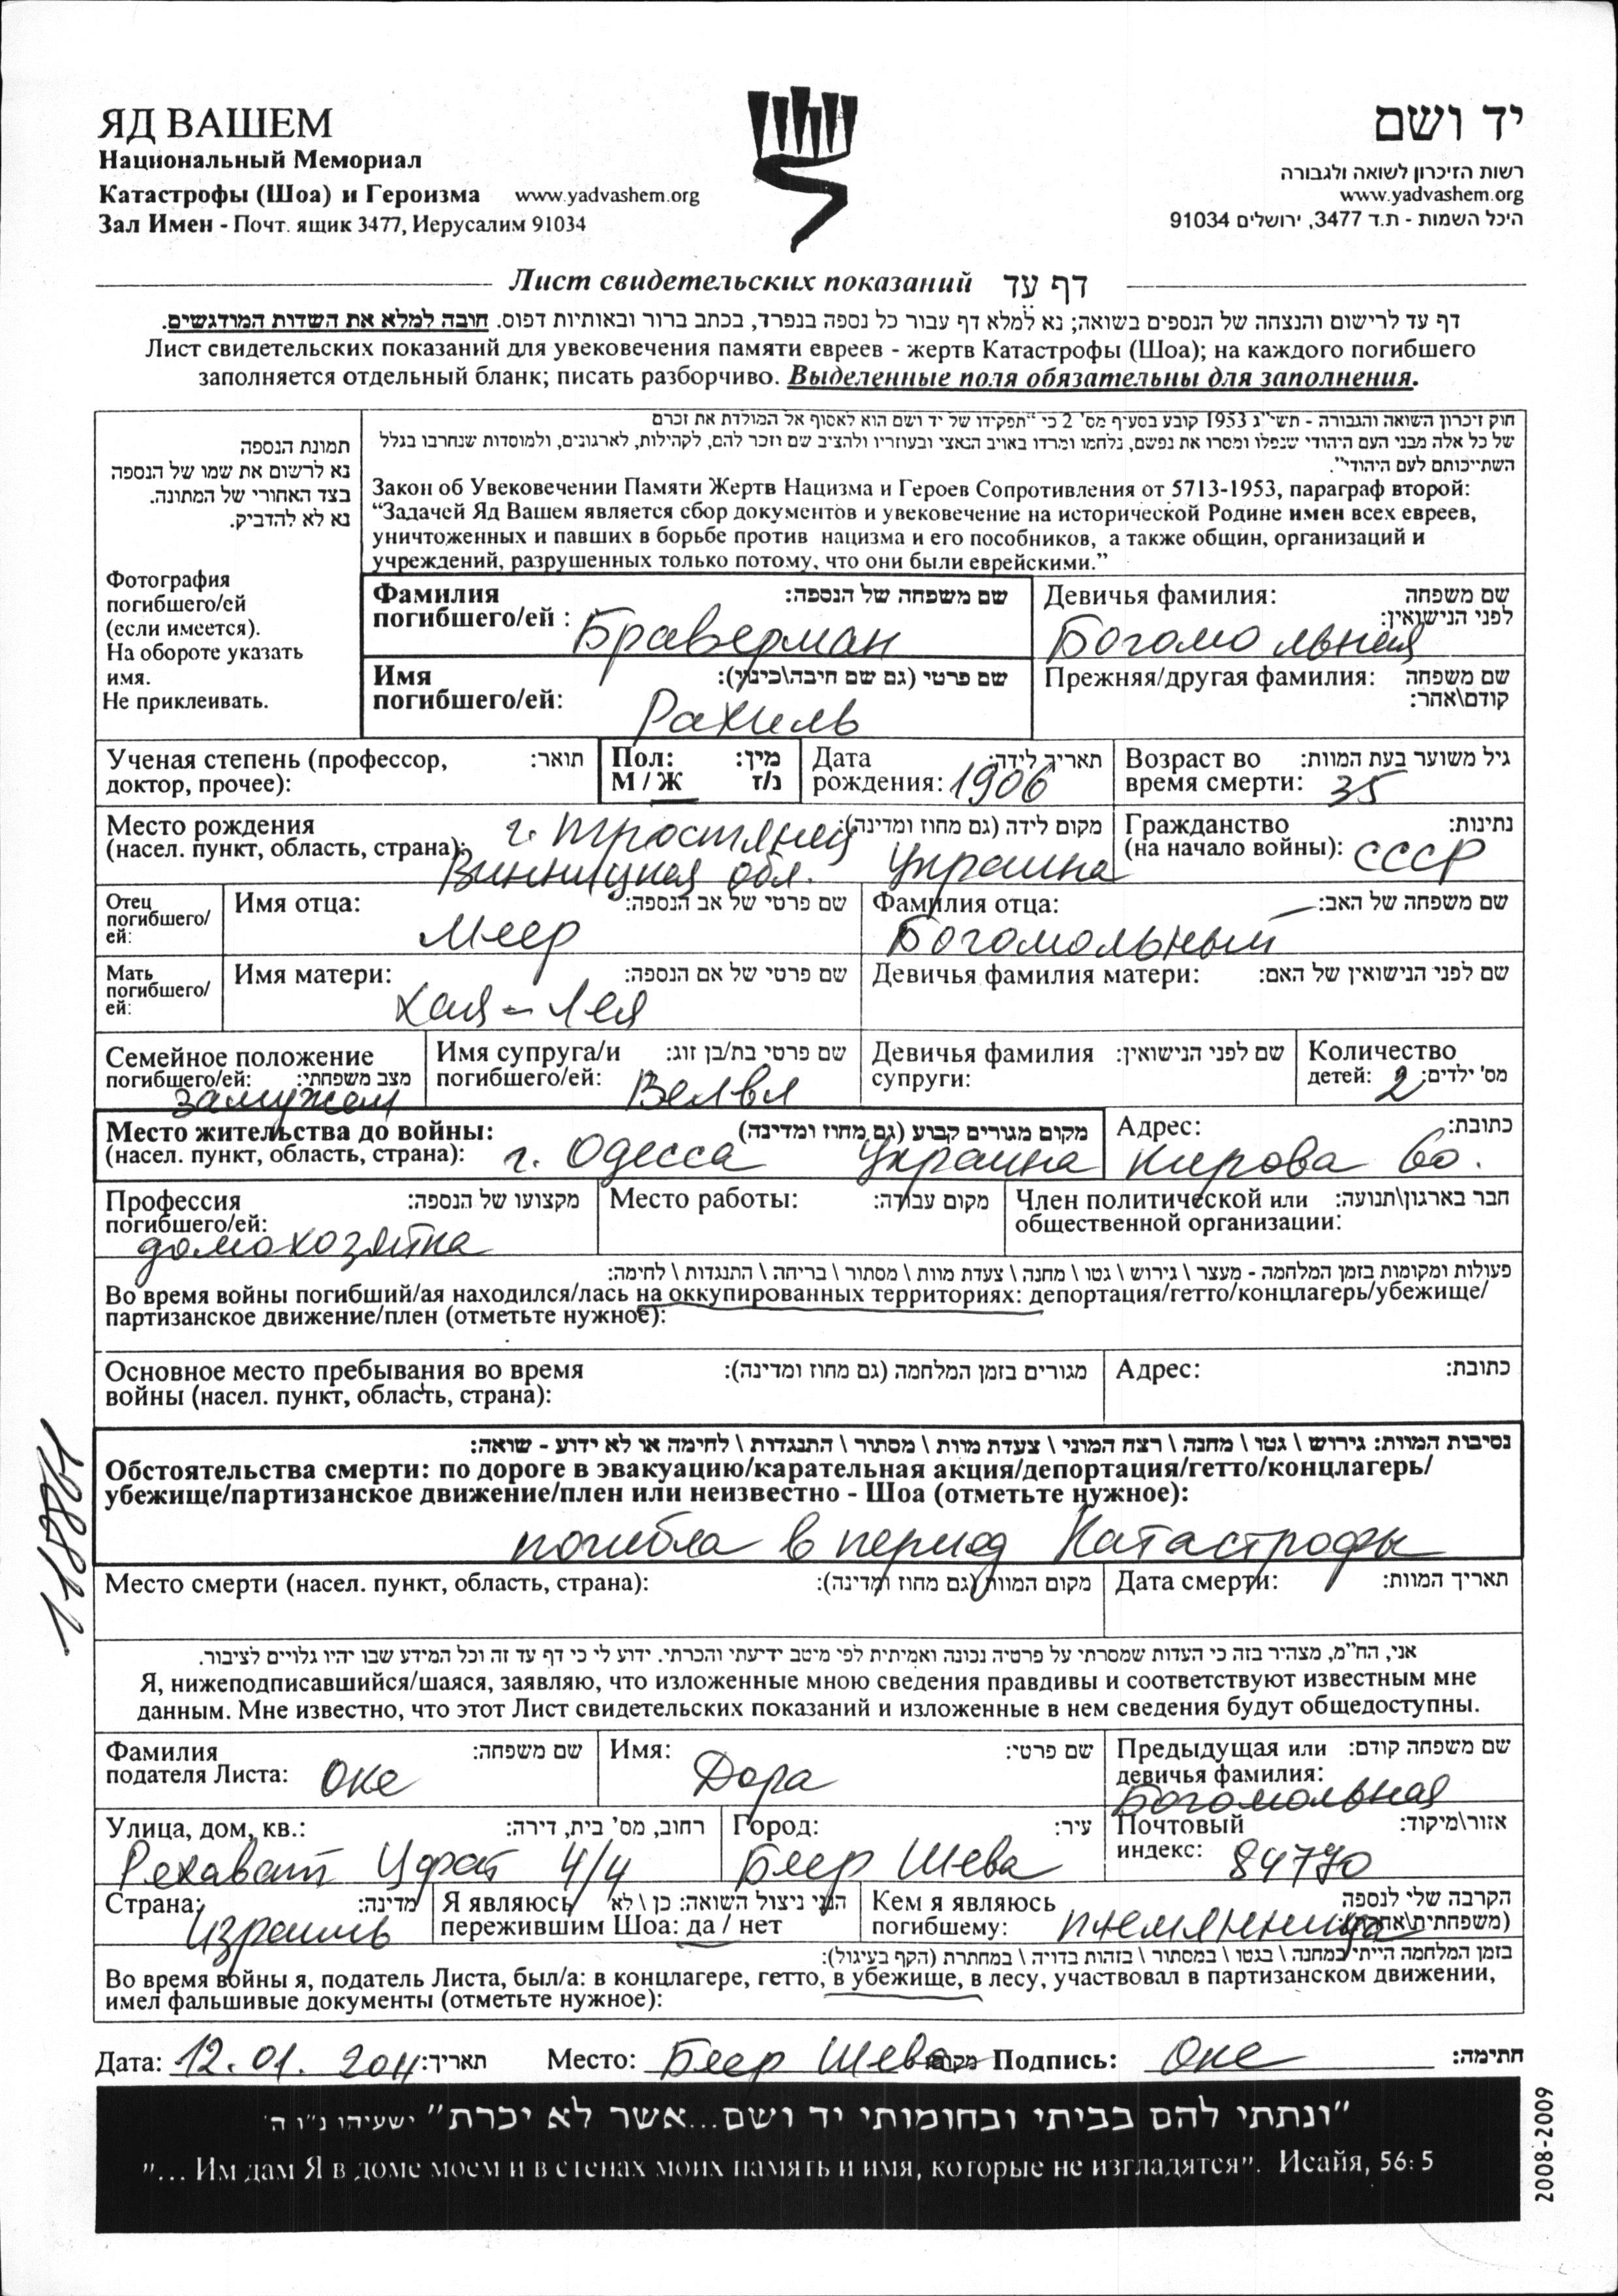 ЯД ВАШЕМ
Национальный Мемориал
Катастрофы (Шоа) и Героизма www.yadvashem.org
Зал Имен - Почт. ящик 3477, Иерусалим 91034
יד ושם
רשות הזיכרון לשואה ולגבורה
www.yadvashem.org
היכל השמות - ת.ד 3477, ירושלים 91034
Лист свидетельских показаний דף עד
דף עד לרישום והנצחה של הנספים בשואה; נא למלא דף עבור כל נספה בנפרד, בכתב ברור ובאותיות דפוס. חובה למלא את השדות המודגשים.
Лист свидетельских показаний для увековечения памяти евреев - жертв Катастрофы (Шоа); на каждого погибшего
заполняется отдельный бланк; писать разборчиво. Выделенные поля обязательны для заполнения.
תמונת הנספה
נא לרשום את שמו של הנספה
בצד האחורי של התמונה.
נא לא להדביק.
Фотография
погибшего/ей
(если имеется).
На обороте указать
имя.
Не приклеивать.
חוק זיכרון השואה והגבורה - תשי"ג 1953 קובע בסעיף מס' 2 כי "תפקידו של יד ושם הוא לאסוף אל המולדת את זכרם
של כל אלה מבני העם היהודי שנפלו ומסרו את נפשם, נלחמו ומרדו באויב הנאצי ובעוזריו ולהציב שם וזכר להם, לקהילות, לארגונים, ולמוסדות שנחרבו בגלל
השתייכותם לעם היהודי".
Закон об Увековечении Памяти Жертв Нацизма и Героев Сопротивления от 5713-1953, параграф второй:
“Задачей Яд Вашем является сбор документов и увековечение на исторической Родине имен всех евреев,
уничтоженных и павших в борьбе против нацизма и его пособников, а также общин, организаций и
учреждений, разрушенных только потому, что они были еврейскими.”
Фамилия שם משפחה של הנספה:
погибшего/ей : Браверман
Девичья фамилия: שם משפחה
לפני הנישואין:
Богомольная
Имя שם פרטי (גם שם חיבה\כינוי):
погибшего/ей: Рахиль
Прежняя/другая фамилия: שם משפחה
קודם\אחר:
Ученая степень (профессор, תואר:
доктор, прочее):
Пол: מין:
М / Ж ז/נ
Дата תאריך לידה:
рождения: 1906
Возраст во גיל משוער בעת המוות:
время смерти: 35
Место рождения г. Тростянец מקום לידה (גם מחוז ומדינה):
(насел. пункт, область, страна):
Винницкая обл. Украина
Гражданство נתינות:
(на начало войны): СССР
Отец
погибшего/
ей:
Имя отца: שם פרטי של אב הנספה:
Меер
Фамилия отца: שם משפחה של האב:
Богомольный
Мать
погибшего/
ей:
Имя матери: שם פרטי של אם הנספה:
Хая-Лея
Девичья фамилия матери: שם לפני הנישואין של האם:
Семейное положение
погибшего/ей: מצב משפחתי:
замужем
Имя супруга/и שם פרטי בת/בן זוג:
погибшего/ей: Велвл
Девичья фамилия שם לפני הנישואין:
супруги:
Количество
детей: 2 מס' ילדים:
Место жительства до войны: מקום מגורים קבוע (גם מחוז ומדינה)
(насел. пункт, область, страна): г. Одесса Украина
Адрес: כתובת:
Кирова 60.
Профессия מקצועו של הנספה:
погибшего/ей:
домохозяйка
Место работы: מקום עבודה:
Член политической или חבר בארגון\תנועה:
общественной организации:
פעולות ומקומות בזמן המלחמה - מעצר \ גירוש \ גטו \ מחנה \ צעדת מוות \ מסתור \ בריחה \ התנגדות \ לחימה:
Во время войны погибший/ая находился/лась на оккупированных территориях: депортация/гетто/концлагерь/убежище/
партизанское движение/плен (отметьте нужное):
Основное место пребывания во время מגורים בזמן המלחמה (גם מחוז ומדינה):
войны (насел. пункт, область, страна):
Адрес: כתובת:
נסיבות המוות: גירוש \ גטו \ מחנה \ רצח המוני \ צעדת מוות \ מסתור \ התנגדות \ לחימה או לא ידוע - שואה:
Обстоятельства смерти: по дороге в эвакуацию/карательная акция/депортация/гетто/концлагерь/
убежище/партизанское движение/плен или неизвестно - Шоа (отметьте нужное):
погибла в период Катастрофы
Место смерти (насел. пункт, область, страна): מקום המוות (גם מחוז ומדינה):
Дата смерти: תאריך המוות:
אני, הח"מ, מצהיר בזה כי העדות שמסרתי על פרטיה נכונה ואמיתית לפי מיטב ידיעתי והכרתי. ידוע לי כי דף עד זה וכל המידע שבו יהיו גלויים לציבור.
Я, нижеподписавшийся/шаяся, заявляю, что изложенные мною сведения правдивы и соответствуют известным мне
данным. Мне известно, что этот Лист свидетельских показаний и изложенные в нем сведения будут общедоступны.
Фамилия שם משפחה:
подателя Листа: Оке
Имя: שם פרטי:
Дора
Предыдущая или שם משפחה קודם:
девичья фамилия:
Богомольная
Улица, дом, кв.: רחוב, מס' בית, דירה:
Рехават Цфат 4/4
Город: עיר:
Беер Шева
Почтовый אזור\מיקוד:
индекс: 84770
Страна: מדינה:
Израиль
Я являюсь הנני ניצול השואה: כן \ לא
пережившим Шоа: да / нет
Кем я являюсь הקרבה שלי לנספה
погибшему: племянница (משפחתית\אחרת):
בזמן המלחמה הייתי במחנה \ בגטו \ במסתור \ בזהות בדויה \ במחתרת (הקף בעיגול):
Во время войны я, податель Листа, был/а: в концлагере, гетто, в убежище, в лесу, участвовал в партизанском движении,
имел фальшивые документы (отметьте нужное):
Дата: 12.01.2011 תאריך: Место: Беер Шева מקום Подпись: Оке חתימה:
"ונתתי להם בביתי ובחומותי יד ושם...אשר לא יכרת" ישעיהו נ"ו ה'
"... Им дам Я в доме моем и в стенах моих память и имя, которые не изгладятся". Исайя, 56: 5
2008-2009